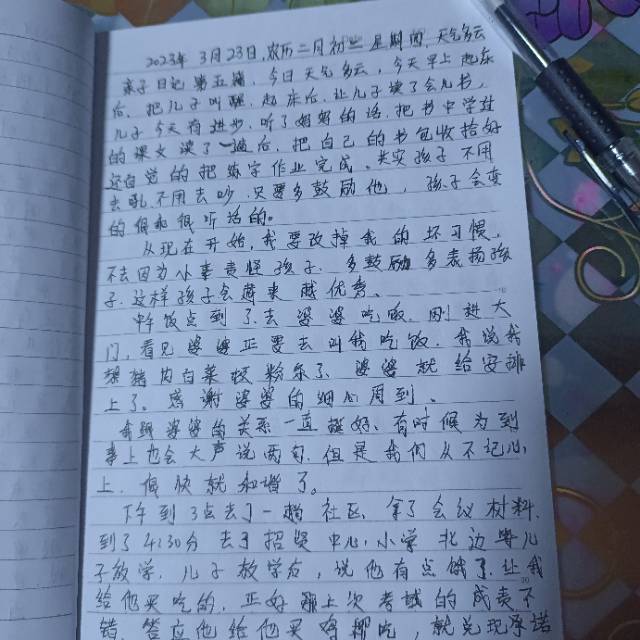 2023年 3月23日,农历二月初二 星期四,天气多云
亲子日记第五篇,今日天气多云,今天早上起床
后,把儿子叫醒,起床后,让儿子读了会儿书,
儿子今天有进步,听了妈妈的话,把书中学过
的课文读了一遍后,把自己的书包收拾好
还自觉的把练字作业完成。其实孩子不用
去吼,不用去吵,只要多鼓励他,孩子会变
的很和很听话的。
从现在开始,我要改掉我的坏习惯,
不去因为小事责怪孩子,多鼓励多表扬孩
子,这样孩子会越来越优秀。
中午饭点到了,去婆婆吃饭,刚进大
门,看见婆婆正要去叫我吃饭,我说我
想猪肉白菜炖粉条了,婆婆就给安排
上了。感谢婆婆的细心周到。
我跟婆婆的关系一直挺好,有时候为到
事上也会大声说两句,但是我们从不记心
上,很快就和谐了。
下午到3点去了一趟社区,拿了会议材料,
到了4:30分去了招奖中心,小学北边等儿
子放学,儿子放学后,说他有点饿了,让我
给他买吃的,正好跟上次考试的成表不
错,答应他给他买鸡柳吃,就兑现承诺